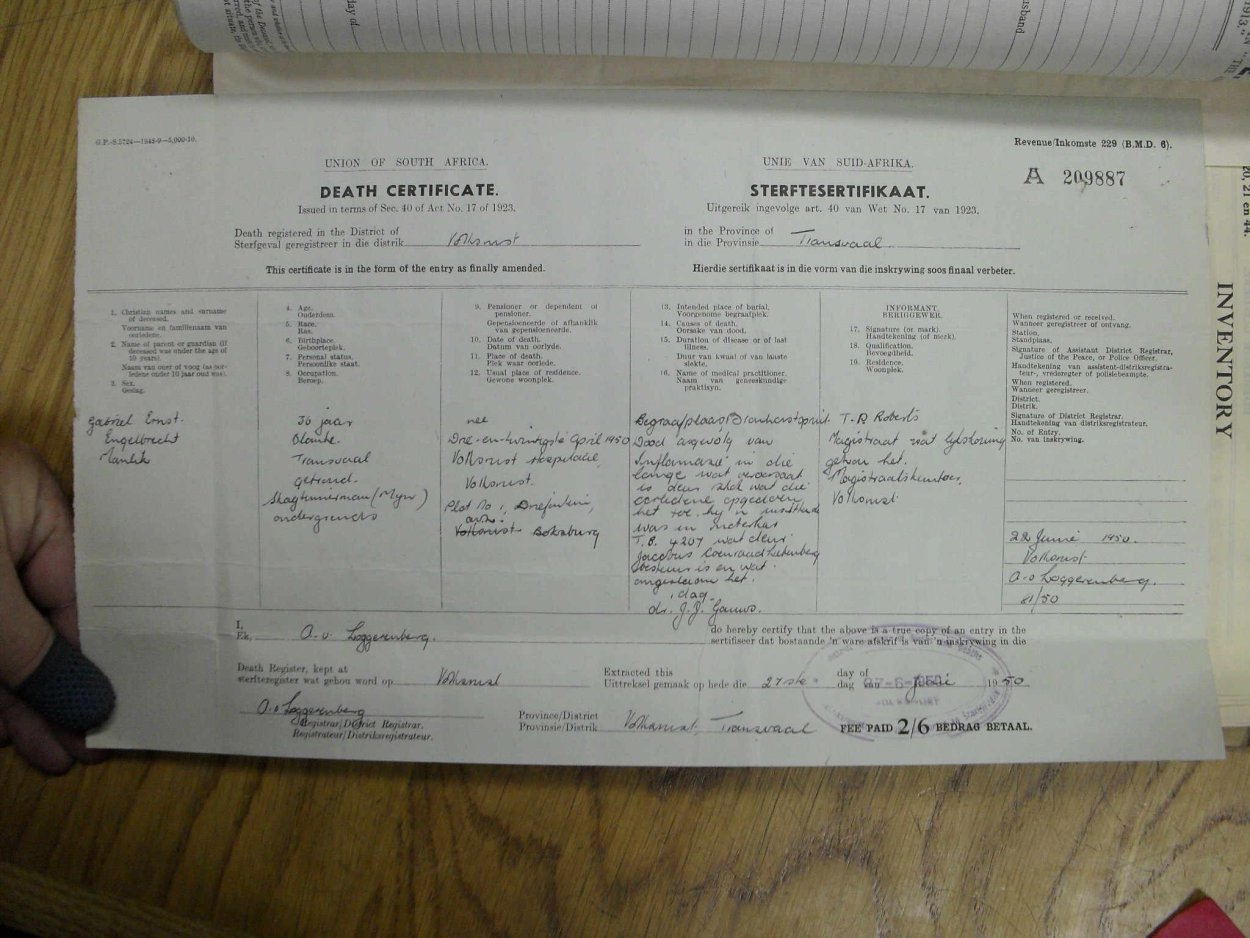 day of
usband
1913,"
20, 21 en 44.
INVENTORY
G.P.-S.5724—1948-9—5,000-10.
Revenue/Inkomste 229 (B.M.D. 6).
UNION OF SOUTH AFRICA.
UNIE VAN SUID-AFRIKA.
A 209887
DEATH CERTIFICATE.
STERFTESERTIFIKAAT.
Issued in terms of Sec. 40 of Act No. 17 of 1923.
Uitgereik ingevolge art. 40 van Wet No. 17 van 1923.
Death registered in the District of
Sterfgeval geregistreer in die distrik Volksrust
in the Province of
in die Provinsie Transvaal.
This certificate is in the form of the entry as finally amended.
Hierdie sertifikaat is in die vorm van die inskrywing soos finaal verbeter.
1. Christian names and surname
of deceased.
Voorname en familienaam van
oorledene.
2. Name of parent or guardian (if
deceased was under the age of
10 years).
Naam van ouer of voog (as oor-
ledene onder 10 jaar oud was).
3. Sex.
Geslag.
4. Age.
Ouderdom.
5. Race.
Ras.
6. Birthplace.
Geboorteplek.
7. Personal status.
Persoonlike staat.
8. Occupation.
Beroep.
9. Pensioner or dependent of
pensioner.
Gepensioeneerde of afhanklik
van gepensioeneerde.
10. Date of death.
Datum van oorlyde.
11. Place of death.
Plek waar oorlede.
12. Usual place of residence.
Gewone woonplek.
13. Intended place of burial.
Voorgenome begraafplek.
14. Causes of death.
Oorsake van dood.
15. Duration of disease or of last
illness.
Duur van kwaal of van laaste
siekte.
16. Name of medical practitioner.
Naam van geneeskundige
praktisyn.
INFORMANT.
BERIGGEWER.
17. Signature (or mark).
Handtekening (of merk).
18. Qualification.
Bevoegdheid.
19. Residence.
Woonplek.
When registered or received.
Wanneer geregistreer of ontvang.
Station.
Standplaas.
Signature of Assistant District Registrar,
Justice of the Peace, or Police Officer.
Handtekening van assistent-distriksregistra-
teur-, vrederegter of polisiebeampte.
When registered.
Wanneer geregistreer.
District.
Distrik.
Signature of District Registrar.
Handtekening van distriksregistrateur.
No. of Entry.
No. van inskrywing.
Gabriel Ernst.
Engelbrecht
Manlik
36 jaar
Blanke.
Transvaal
getroud.
Skagtimmerman (Myn)
ondergronds
nee
Drie-en-twintigste April 1950
Volksrust Hospitaal,
Volksrust.
Plot No 1, Driefontein,
Volksrust Boksburg
Begraafplaas
Dood as gevolg van
Inflamasie in die
longe wat veroorsaak
is deur skok wat die
oorledene opgedoen
het toe hy 'n
was in motorkar
T.B. 4207 wat deur
Jacobus Coenraad
bestuur is en wat
omgeslaan het.
dag
dr. J.J. Gouws.
T. D. Roberts
Magistraat wat lykskouing
gehou het.
Magistraatskantoor,
Volksrust
22 Junie 1950.
Volksrust
A. v Loggerenberg.
81/50
I,
Ek, A. v. Loggerenberg.
do hereby certify that the above is a true copy of an entry in the
sertifiseer dat bostaande 'n ware afskrif is van 'n inskrywing in die
Death Register, kept at
sterfteregister wat gehou word op Volksrust
Extracted this
Uittreksel gemaak op hede die 27ste
day of
dag van Junie 1950
27-6-1950
A. v Loggerenberg
Registrar/District Registrar.
Registrateur/Distriksregistrateur.
Province/District
Provinsie/Distrik Volksrust, Transvaal
FEE PAID 2/6 BEDRAG BETAAL.